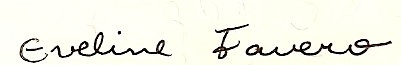 Eveline Favero